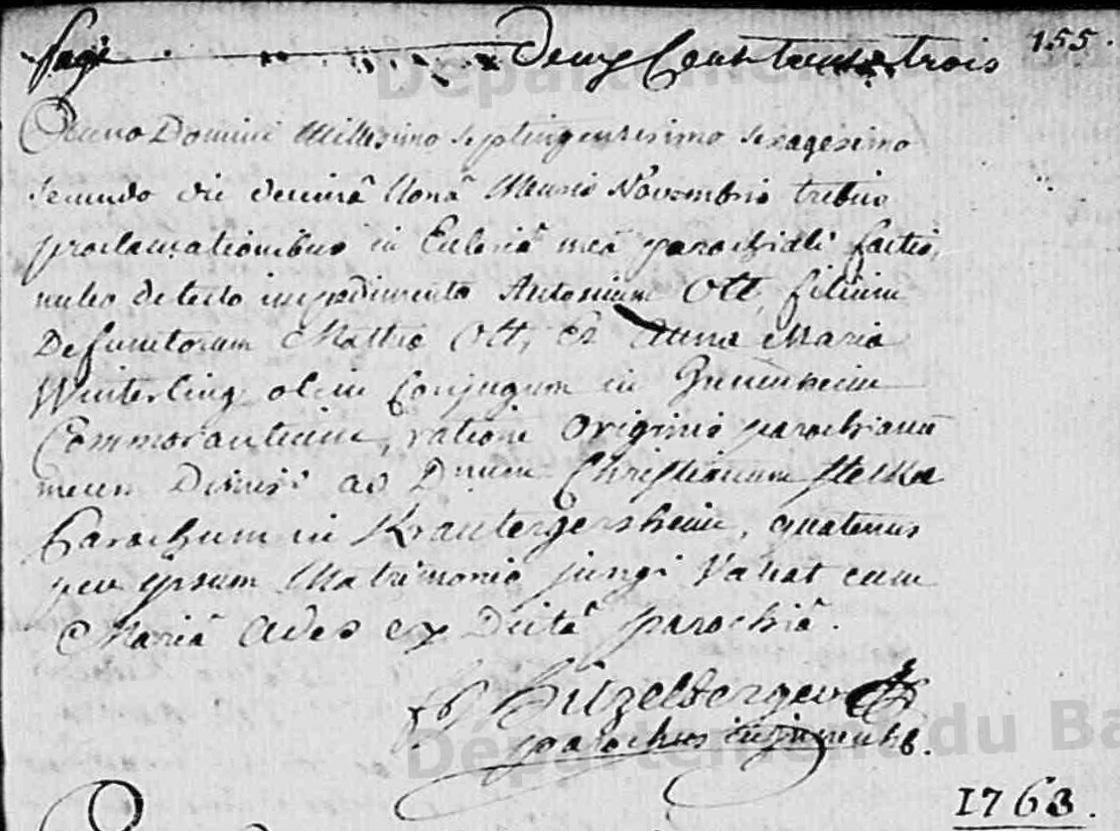 page deux Cent trente trois 155.
Anno Domini Millesimo septingentesimo sexagesimo
secundo die decimâ Nonâ Mensis Novembris tribus
proclamationibus in Ecclesiâ meâ parochiali factis,
nullo detecto impedimento Antonium Ott, filium
Defunctorum Matthiæ Ott, et Anna Maria
Winterling olim Conjugum in
Commorantium, ratione Originis parochianũ
meum Dimisi ad Dnum Christianum
Parochum in Krautergersheim, quatenus
per ipsum Matrimonio jungi Valeat cum
Mariâ Ades ex Dictâ parochiâ.
Hitzelberger
parochus in
1763.
Département du Ba